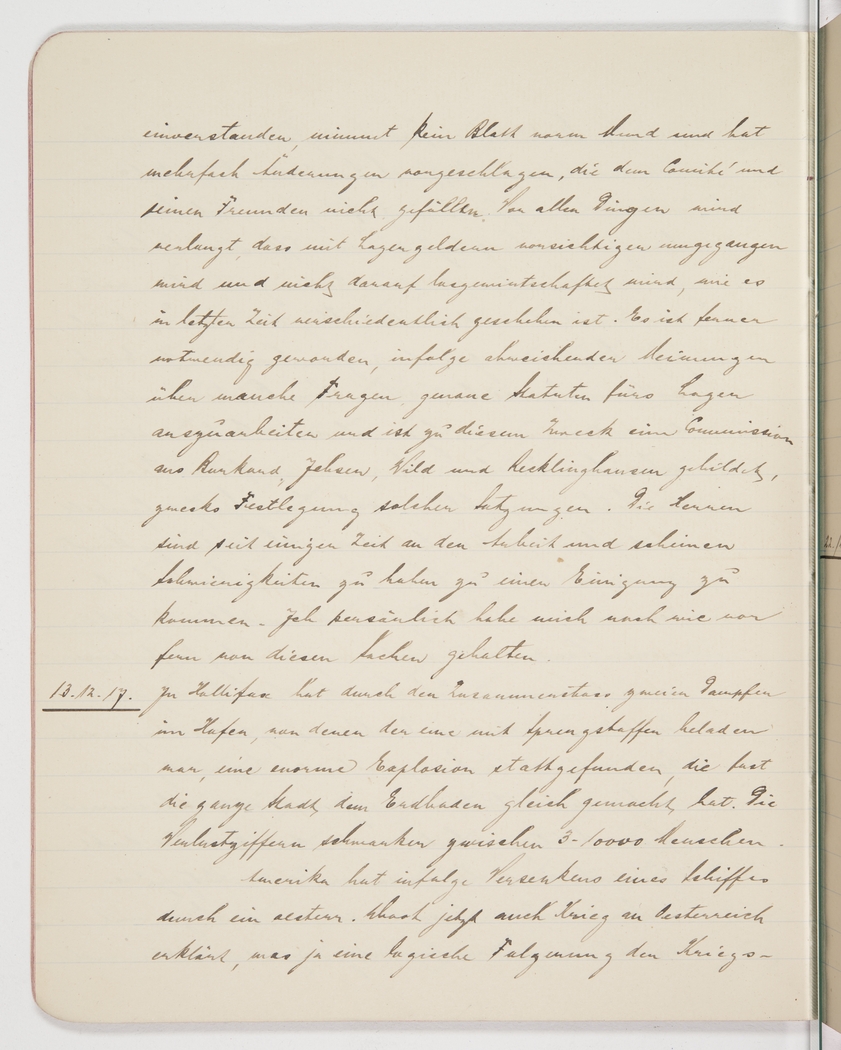 einverstanden, nimmt kein Blatt vorm Mund und hat
mehrfach Änderungen vorgeschlagen, die dem Comité und
seinen Freunden nicht gefallen. Vor allen Dingen wird
verlangt, dass mit Lagergeldern vorsichtiger umgegangen
wird und nicht darauf losgewirtschaftet wird, wie es
in letzter Zeit verschiedentlich geschehen ist. Es ist ferner
notwendig geworden, infolge abweichender Meinungen
über manche Fragen, genaue Statuten fürs Lager
auszuarbeiten und ist zu diesem Zweck eine Commission
aus Burkard, Jebsen, Wild und Recklinghausen gebildet,
zwecks Festlegung solcher Satzungen. Die Herren
sind seit einiger Zeit an der Arbeit und scheinen
Schwierigkeiten zu haben zu einer Einigung zu
kommen. – Ich persönlich habe mich nach wie vor
fern von diesen Sachen gehalten.
13.12.17. In Hallifax hat durch den Zusammenstoss zweier Dampfer
im Hafen, von denen der eine mit Sprengstoffen beladen
war, eine enorme Explosion stattgefunden, die fast
die ganze Stadt dem Erdboden gleich gemacht hat. Die
Verlustziffern schwanken zwischen 3-10000 Menschen.
Amerika hat infolge Versenkens eines Schiffes
durch ein oesterr. Uboot jetzt auch Krieg an Oesterreich
erklärt, was ja eine logische Folgerung der Kriegs-
22./